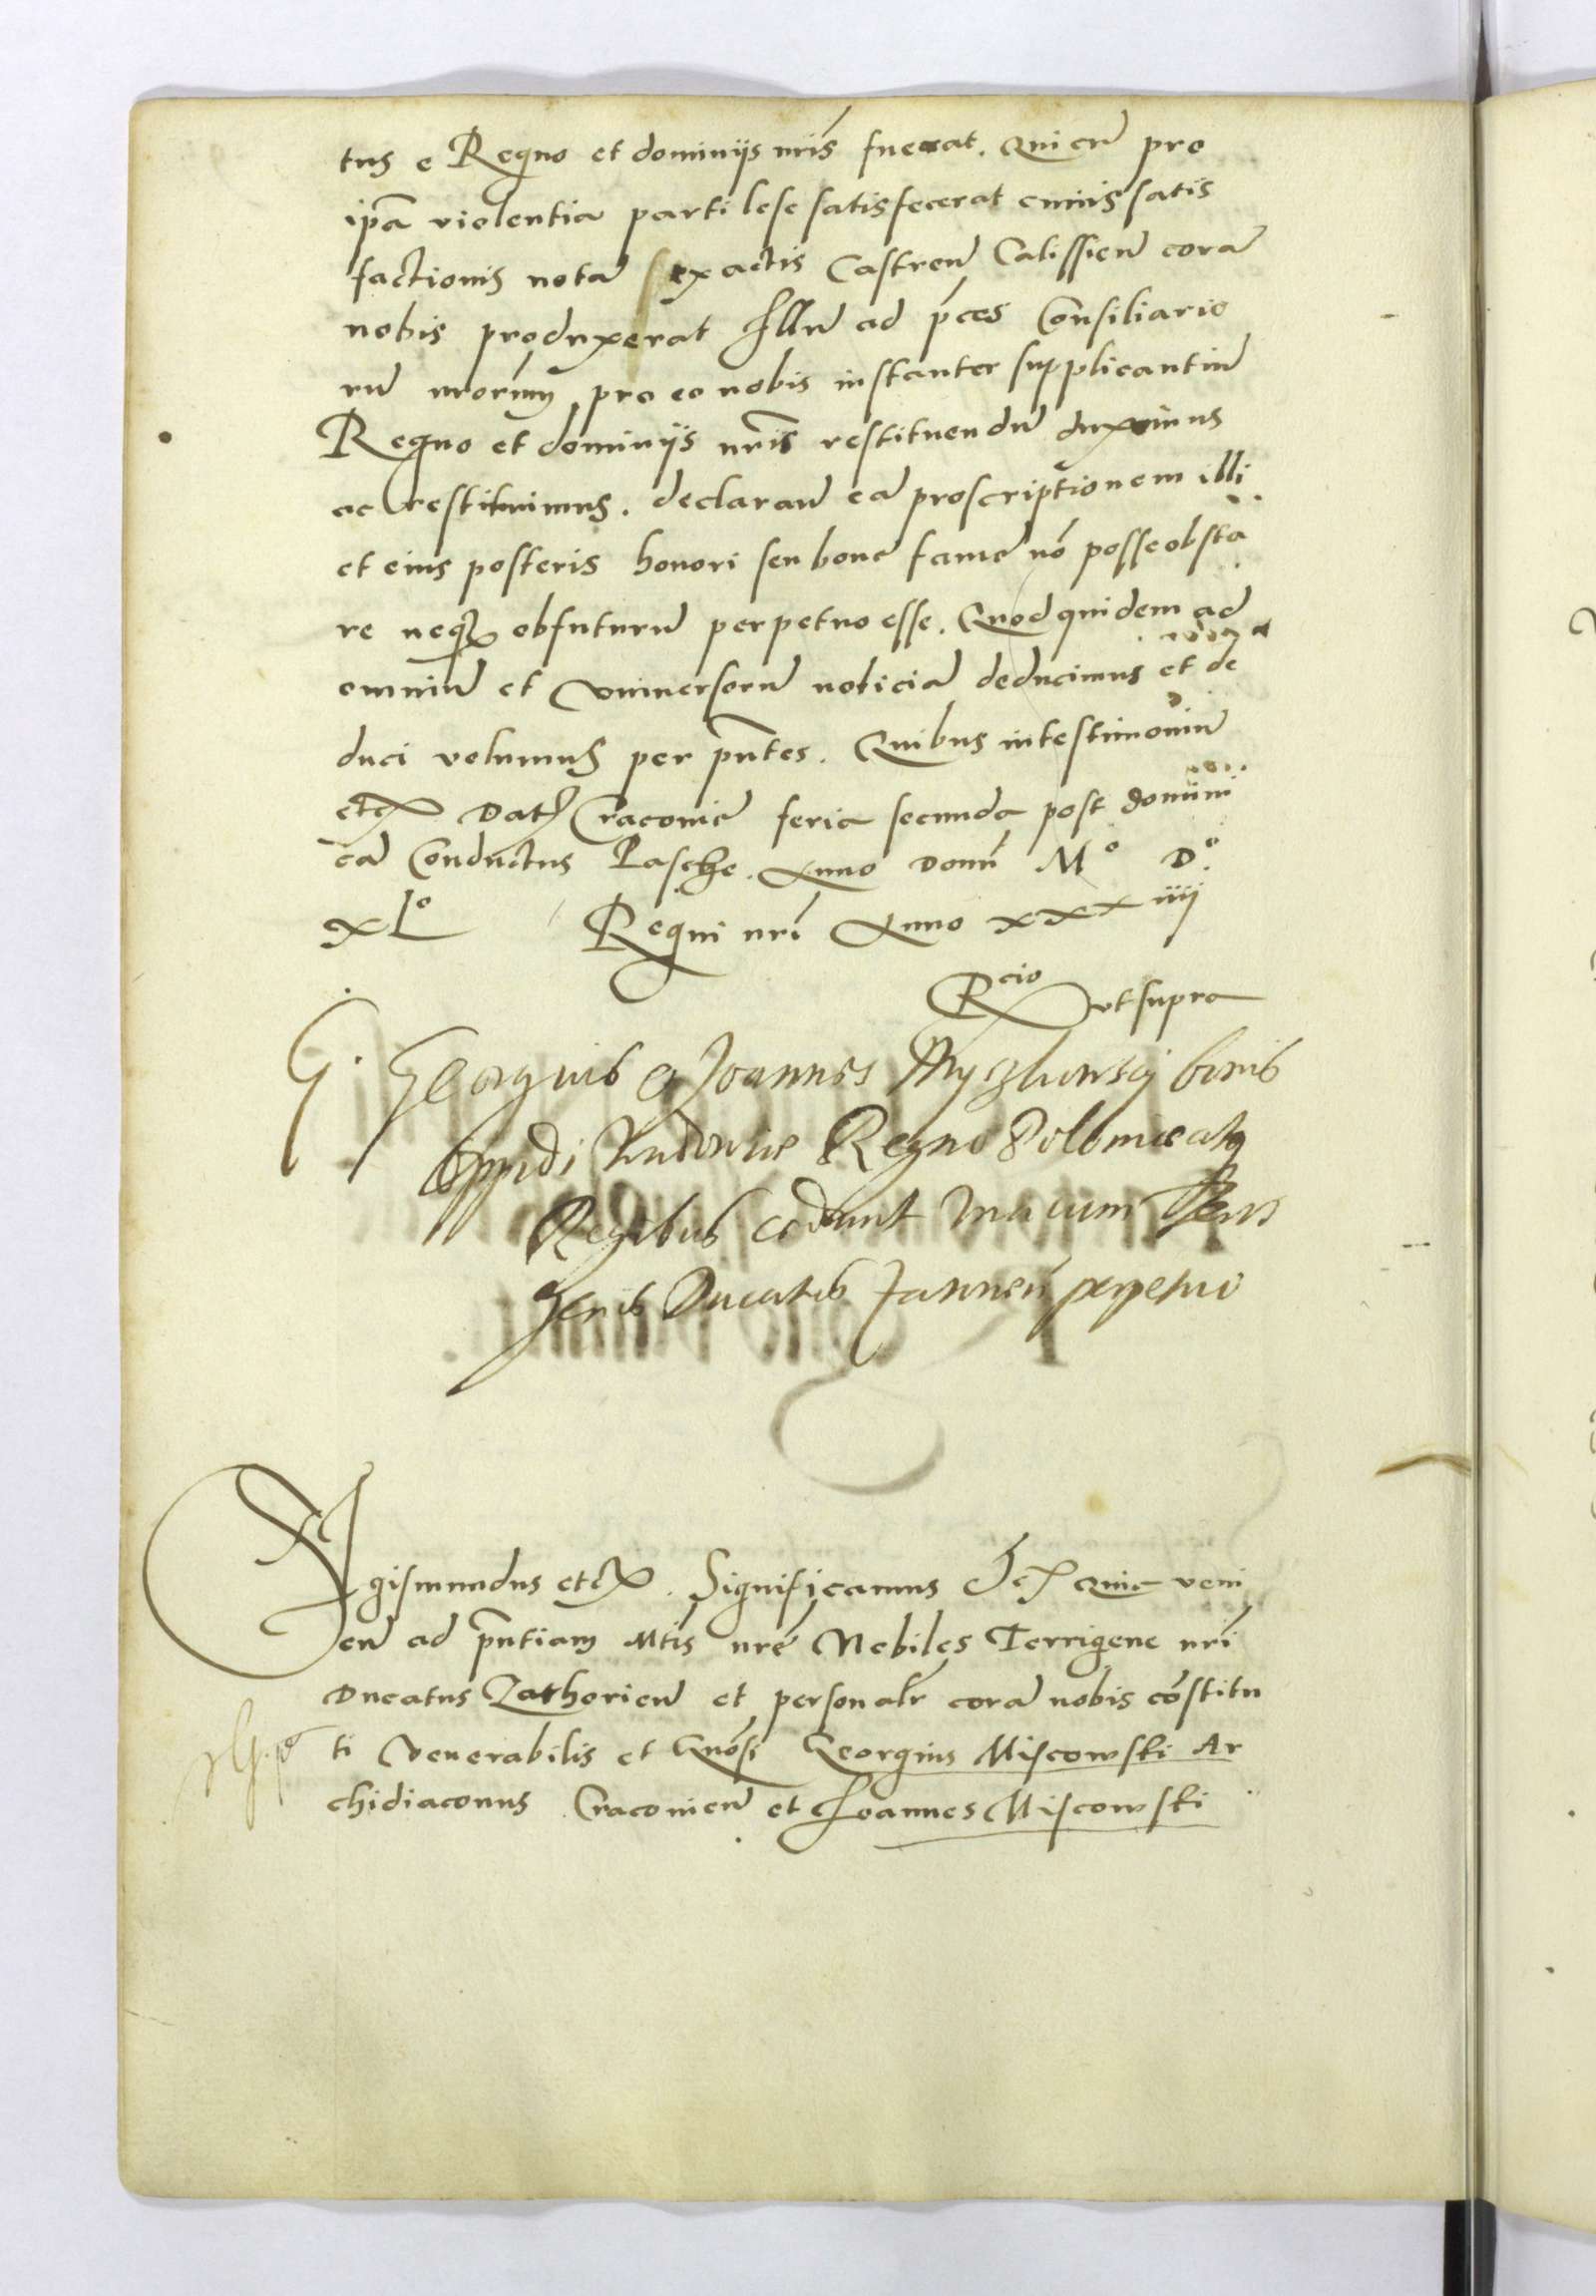 tus e Regno et dominijs nr̃is fuerat. Qui cũ pro
ip̃a violentia parti lese satisfecerat cuius satis
factionis notã ex actis Castreñ Calissieñ corã
nobis produxerat Illũ ad p̃ces Consiliario
rũ nr̃orum pro eo nobis instanter supplicantiũ
Regno et dominijs nr̃is restituendũ duximus
ac restituimus. declarañ eã proscriptionem illi
et eius posteris honori seu bone fame nõ posse obsta
re neq₃ obfuturũ perpetuo esse. Quod quidem ad
omniũ et vniuersorũ noticiã deducimus et de
duci volumus per pñtes. Quibus in testimoniũ
etc̃ Dat̃ Cracouie feria secunda post domini
cã Conductus Pasche. Anno Domĩ Mº Dº
XLº Regni nr̃i Anno xxxiiij
Rcio vt supra
G. Georgius et Joannes Myszkowscÿ bonis
Oppidi Regno Polonie atq₃
Regibus cedunt
Ducatus perpetuo
Sigismundus etc̃. Significamus etc̃ Quia veni
eñ ad pñtiam Mtis nr̃e Nobiles Terrigene nr̃i
Ducatus Zathorieñ et personalr̃ corã nobis cõstitu
ti Venerabilis et Gñosi Georgius Miscowski Ar
chidiaconus Cracouieñ et Joannes Miscowski